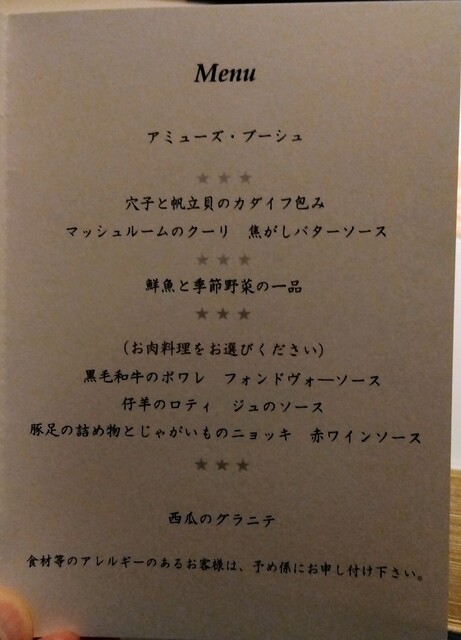 Menu
アミューズ・ブーシュ
★★★
穴子と帆立貝のカダイフ包み
マッシュルームのクーリ　焦がしバターソース
★★★
鮮魚と季節野菜の一品
★★★
（お肉料理をお選びください）
黒毛和牛のポワレ　フォンドヴォーソース
仔羊のロティ　ジュのソース
豚足の詰め物とじゃがいものニョッキ　赤ワインソース
★★★
西瓜のグラニテ
食材等のアレルギーのあるお客様は、予め係にお申し付け下さい。